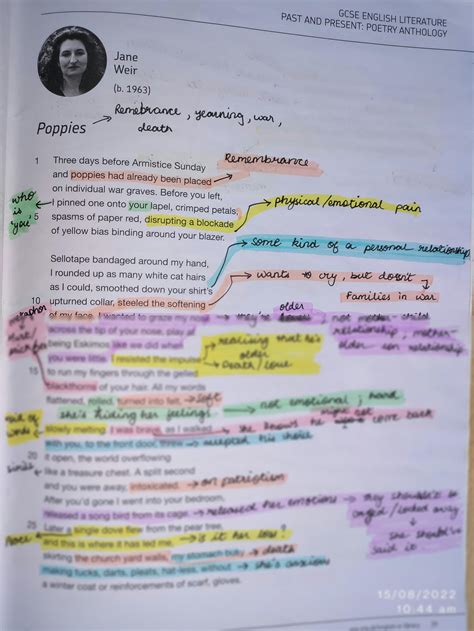 GCSE ENGLISH LITERATURE
PAST AND PRESENT: POETRY ANTHOLOGY
Jane
Weir
(b. 1963)
Remebrance, yearning, war,
death
Poppies
1 Three days before Armistice Sunday
Remembrance
and poppies had already been placed
on individual war graves. Before you left,
who is 'you'
I pinned one onto your lapel, crimped petals,
physical/emotional pain
5 spasms of paper red, disrupting a blockade
of yellow bias binding around your blazer.
some kind of a personal relationship
Sellotape bandaged around my hand,
I rounded up as many white cat hairs
wants to cry, but doesn't
as I could, smoothed down your shirt's
families in war
10 upturned collar, steeled the softening
of my face. I wanted to graze my nose
they're older
not mother - child
relationship, mother-
older son relationship
across the tip of your nose, play at
being Eskimos like we did when
realising that he's
older
you were little. I resisted the impulse
Death/love
15 to run my fingers through the gelled
blackthorns of your hair. All my words
flattened, rolled, turned into felt,
soft
she's hiding her feelings
not emotional; hard
slowly melting. I was brave, as I walked
she knows he might not come back
with you, to the front door, threw
accepted his choice
20 it open, the world overflowing
simile
like a treasure chest. A split second
and you were away, intoxicated.
on patriotism
After you'd gone I went into your bedroom,
released a song bird from its cage.
released her emotions
they shouldn't be
caged/locked away
she should've
said it
25 Later a single dove flew from the pear tree,
Peace
and this is where it has led me,
is it her loss?
skirting the church yard walls, my stomach busy
death
making tucks, darts, pleats, hat-less, without
she's anxious
a winter coat or reinforcements of scarf, gloves.
15/08/2022
10:44 am